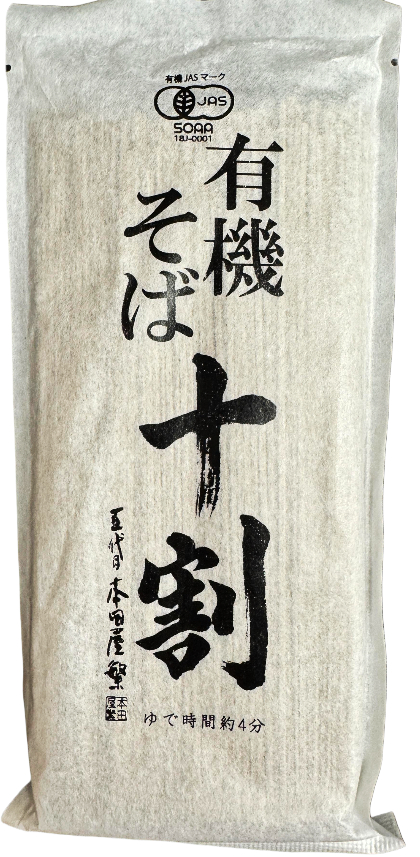 有機JASマーク
JAS
SOAA
18J-0001
有機
そば
十割
五代目 本田屋繁
本田屋繁
ゆで時間約4分